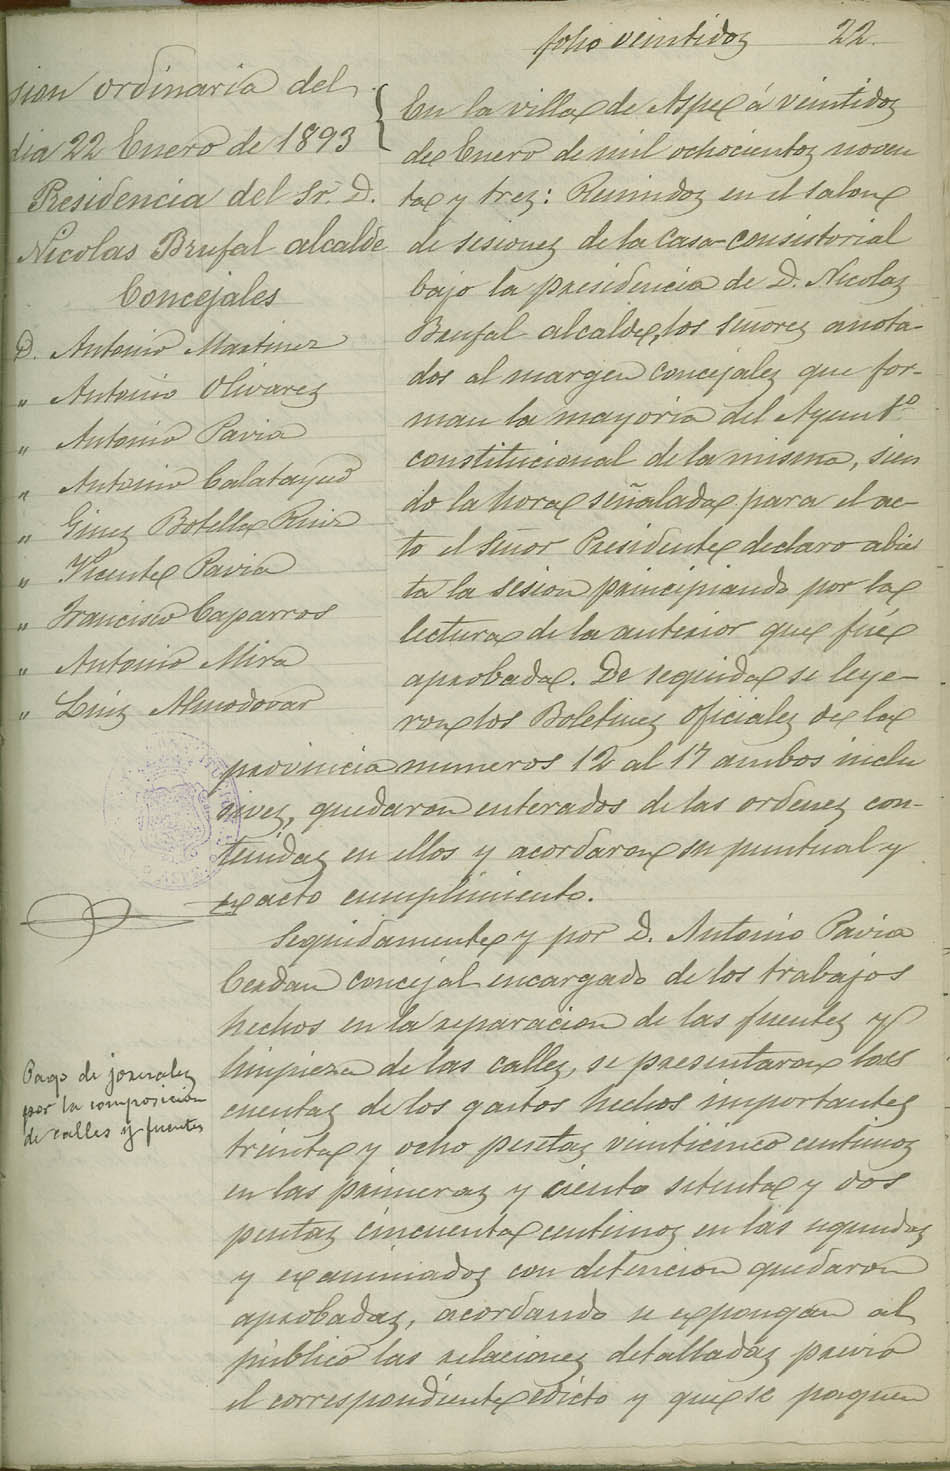 folio veintidos 22.
sion ordinaria del
dia 22 Enero de 1893
Presidencia del Sr. D.
Nicolas Brufal alcalde
Concejales
D. Antonio Martinez
" Antonio Olivares
" Antonio Pavia
" Antonio Calatayud
" Gines Botella Ruiz
" Vicente Pavia
" Francisco Caparros
" Antonio Mira
" Luis Almodovar
En la villa de Aspe á veintidos
de Enero de mil ochocientos noven
ta y tres: Reunidos en el salon
de sesiones de la Casa-consistorial
bajo la presidencia de D. Nicolas
Brufal alcalde, los señores anota-
dos al margen concejales que for-
man la mayoria del Ayuntº
constitucional de la misma, sien
do la hora señalada para el ac-
to el señor Presidente declaro abier
ta la sesion principiando por la
lectura de la anterior que fué
aprobada. De seguida se leye-
ron los Boletines oficiales de la
provincia numeros 12 al 17 ambos inclu
sives, quedaron enterados de las ordenes con-
tenidas en ellos y acordaron su puntual y
exacto cumplimiento.
Seguidamente y por D. Antonio Pavia
Cerdan concejal encargado de los trabajos
hechos en la reparacion de las fuentes y
limpieza de las calles, se presentaron las
cuentas de los gastos hechos importantes
treinta y ocho pesetas veinticinco centimos
en las primeras y ciento setenta y dos
pesetas cincuenta centimos en las segundas
y examinados con detencion quedaron
aprobadas, acordando se expongan al
publico las relaciones detalladas previo
el correspondiente edicto y que se paguen
Pago de jornales
por la composicion
de calles y fuentes